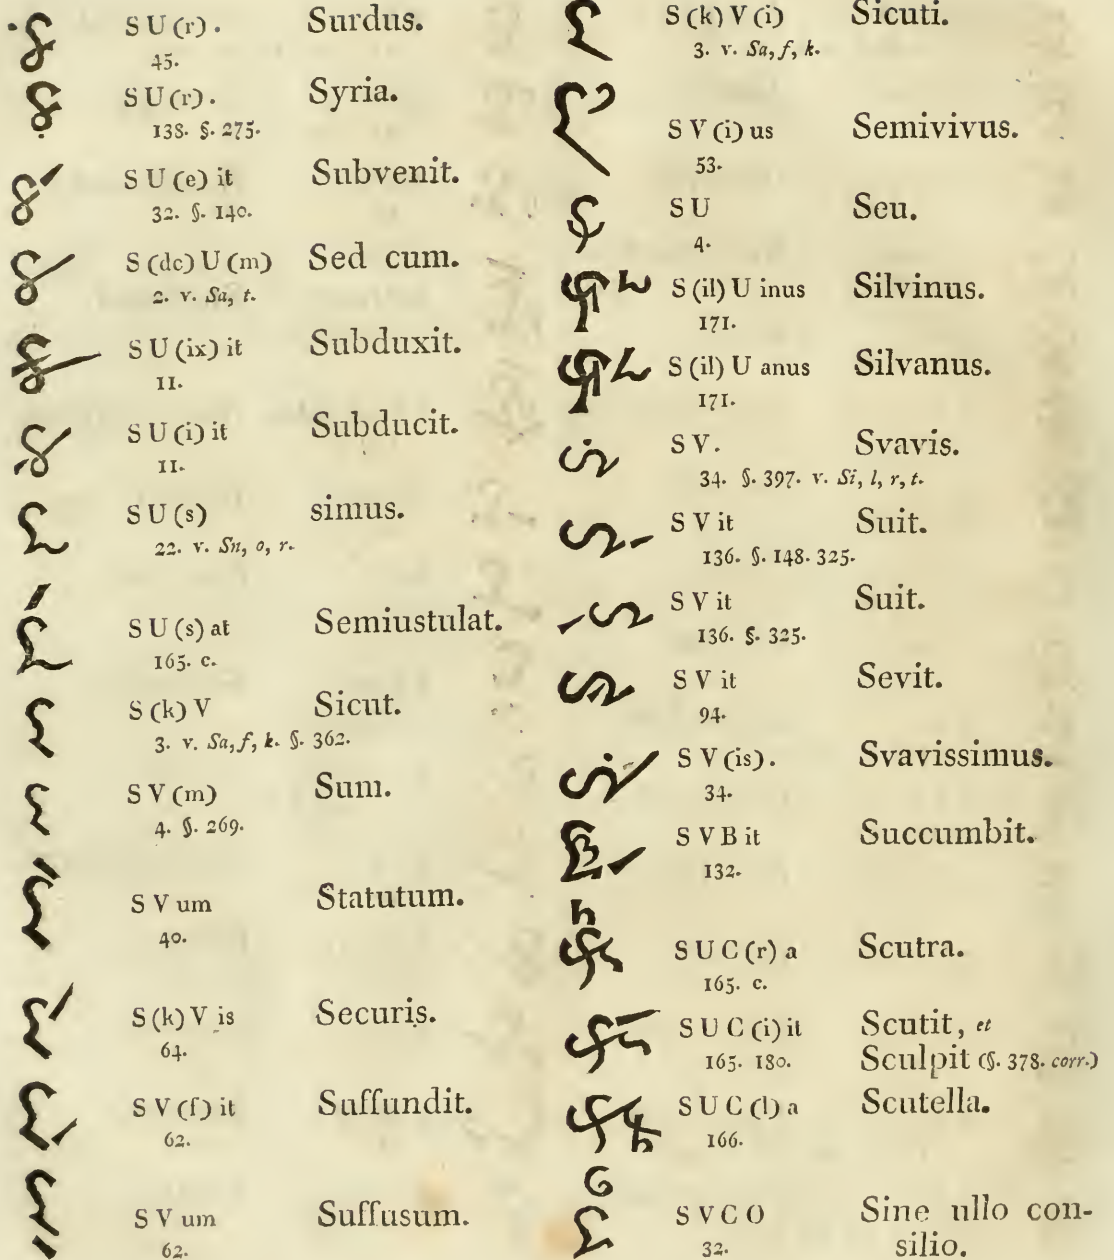 S U (r) . Surdus.
45.
S U (r) . Syria.
138. §. 275.
S U (e) it Subvenit.
32. §. 140.
S (dc) U (m) Sed cum.
2. v. Sa, t.
S U (ix) it Subduxit.
11.
S U (i) it Subducit.
11.
S U (s) simus.
22. v. Sn, o, r.
S U (s) at Semiustulat.
165. c.
S (k) V Sicut.
3. v. Sa, f, k. §. 362.
S V (m) Sum.
4. §. 269.
S V um Statutum.
40.
S (k) V is Securis.
64.
S V (f) it Suffundit.
62.
S V um Suffusum.
62.
S (k) V (i) Sicuti.
3. v. Sa, f, k.
S V (i) us Semivivus.
53.
S U Seu.
4.
S (il) U inus Silvinus.
171.
S (il) U anus Silvanus.
171.
S V. Svavis.
34. §. 397. v. Si, l, r, t.
S V it Suit.
136. §. 148. 325.
S V it Suit.
136. §. 325.
S V it Sevit.
94.
S V (is) . Svavissimus.
34.
S V B it Succumbit.
132.
S U C (r) a Scutra.
165. c.
S U C (i) it Scutit, et
165. 180. Sculpit (§. 378. corr.)
S U C (l) a Scutella.
166.
S V C O Sine ullo con-
32. silio.